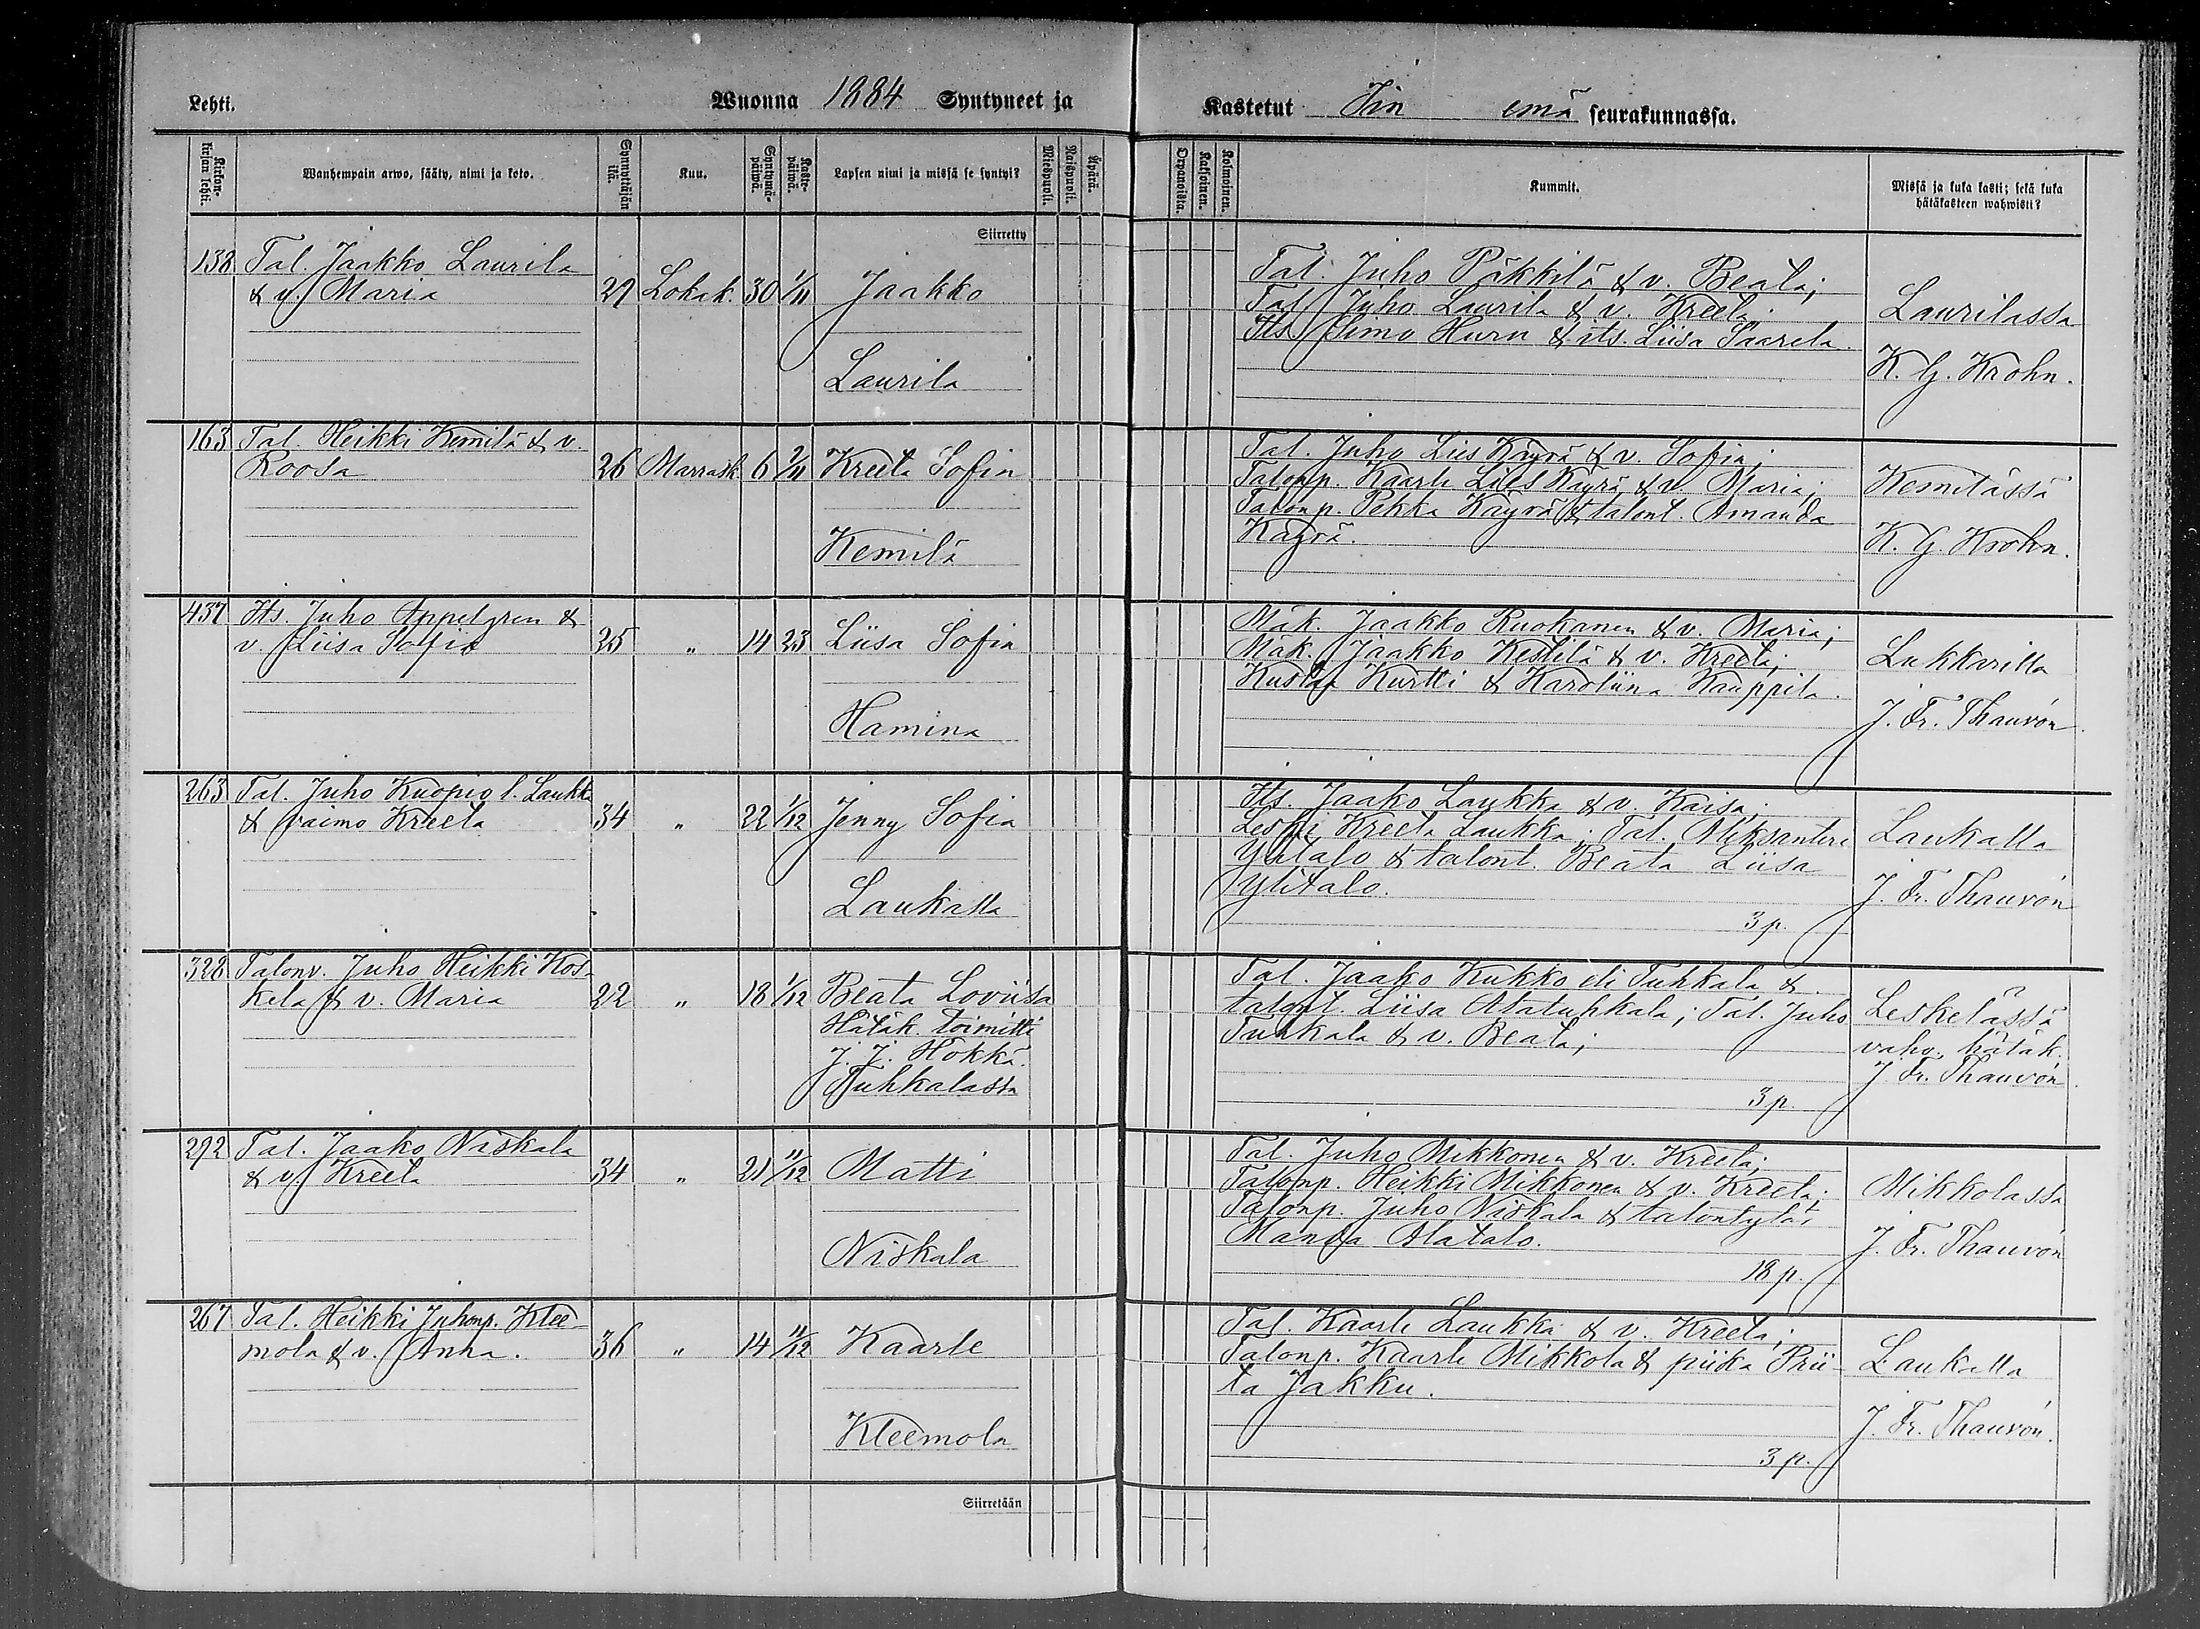 Lehti.
Wuonna 1884 Syntyneet ja
Kastetut Iin emä seurakunnassa.
Kirkon-kirjan lehti.
Wanhempain arwo, sääty, nimi ja koto.
Synnyttäjän ikä.
Kuu.
Syntymä-päiwä.
Kaste-päiwä.
Lapsen nimi ja missä se syntyi?
Miespuoli.
Naispuoli.
Äpärä.
Orpanoista.
Kaksoinen.
Kolmoinen.
Kummit.
Missä ja kuka kasti; sekä kuka hätäkasteen wahwisti?
Siirretty
138 Tal. Jaakko Laurila
& v. Maria 29 Lokak. 30 1/11 Jaakko
Laurila
Tal. Juho Päkkilä & v. Beata;
Tal. Juho Laurila & v. Kreeta.
Its. Simo Huru & its. Liisa Saarela.
Laurilassa
K. G. Krohn.
163 Tal. Heikki Kemilä & v.
Roosa 26 Marrask. 6 9/11 Kreeta Sofia
Kemilä
Tal. Juho Liis Käyrä & v. Sofia;
Talonp. Kaarle Liies Käyrä & v. Maria;
Talonp. Pekka Käyrä & talont. Amanda
Käyrä.
Kemilässä
K. G. Krohn.
437 Its. Juho Appelgren &
v. Liisa Sofia 25 " 14 23 Liisa Sofia
Hamina
Mäk. Jaakko Ruokanen & v. Maria;
Mäk. Jaakko Kestilä & v. Kreeta;
Kustaa Kurtti & Karoliina Kauppila.
Lukkarilla
J. Fr. Thauvón.
263 Tal. Juho Kuopio l. Laukka
& vaimo Kreeta 34 " 22 1/12 Jenny Sofia
Laukalla
Its. Jaako Laukka & v. Kaisa;
Leski Kreeta Laukka; Tal. Aleksanteri
Ylitalo & talont. Beata Liisa
Ylitalo.
3 p.
Laukalla
J. Fr. Thauvón
328 Talonv. Juho Heikki Kos-
kela & v. Maria 22 " 18 1/12 Beata Loviisa
Hätäk. toimitti
J. J. Hökkä.
Tuhkalassa
Tal. Jaako Kukko eli Tuhkala &
talont. Liisa Alatuhkala; Tal. Juho
Tuhkala & v. Beata;
3 p.
Leskelässä
vahv. hätäk.
J. Fr. Thauvón.
292 Tal. Jaako Niskala
& v. Kreeta 34 " 21 11/12 Matti
Niskala
Tal. Juho Mikkonen & v. Kreeta;
Talonp. Heikki Mikkonen & v. Kreeta;
Talonp. Juho Niskala & talontytär
Manda Alatalo.
18 p.
Mikkolassa
J. Fr. Thauvón
267 Tal. Heikki Juhonp. Klee-
mola & v. Anna. 36 " 14 11/12 Kaarle
Kleemola
Tal. Kaarle Laukka & v. Kreeta;
Talonp. Kaarle Mikkola & piika Prii-
ta Jakku.
3 p.
Laukalla
J. Fr. Thauvón.
Siirretään